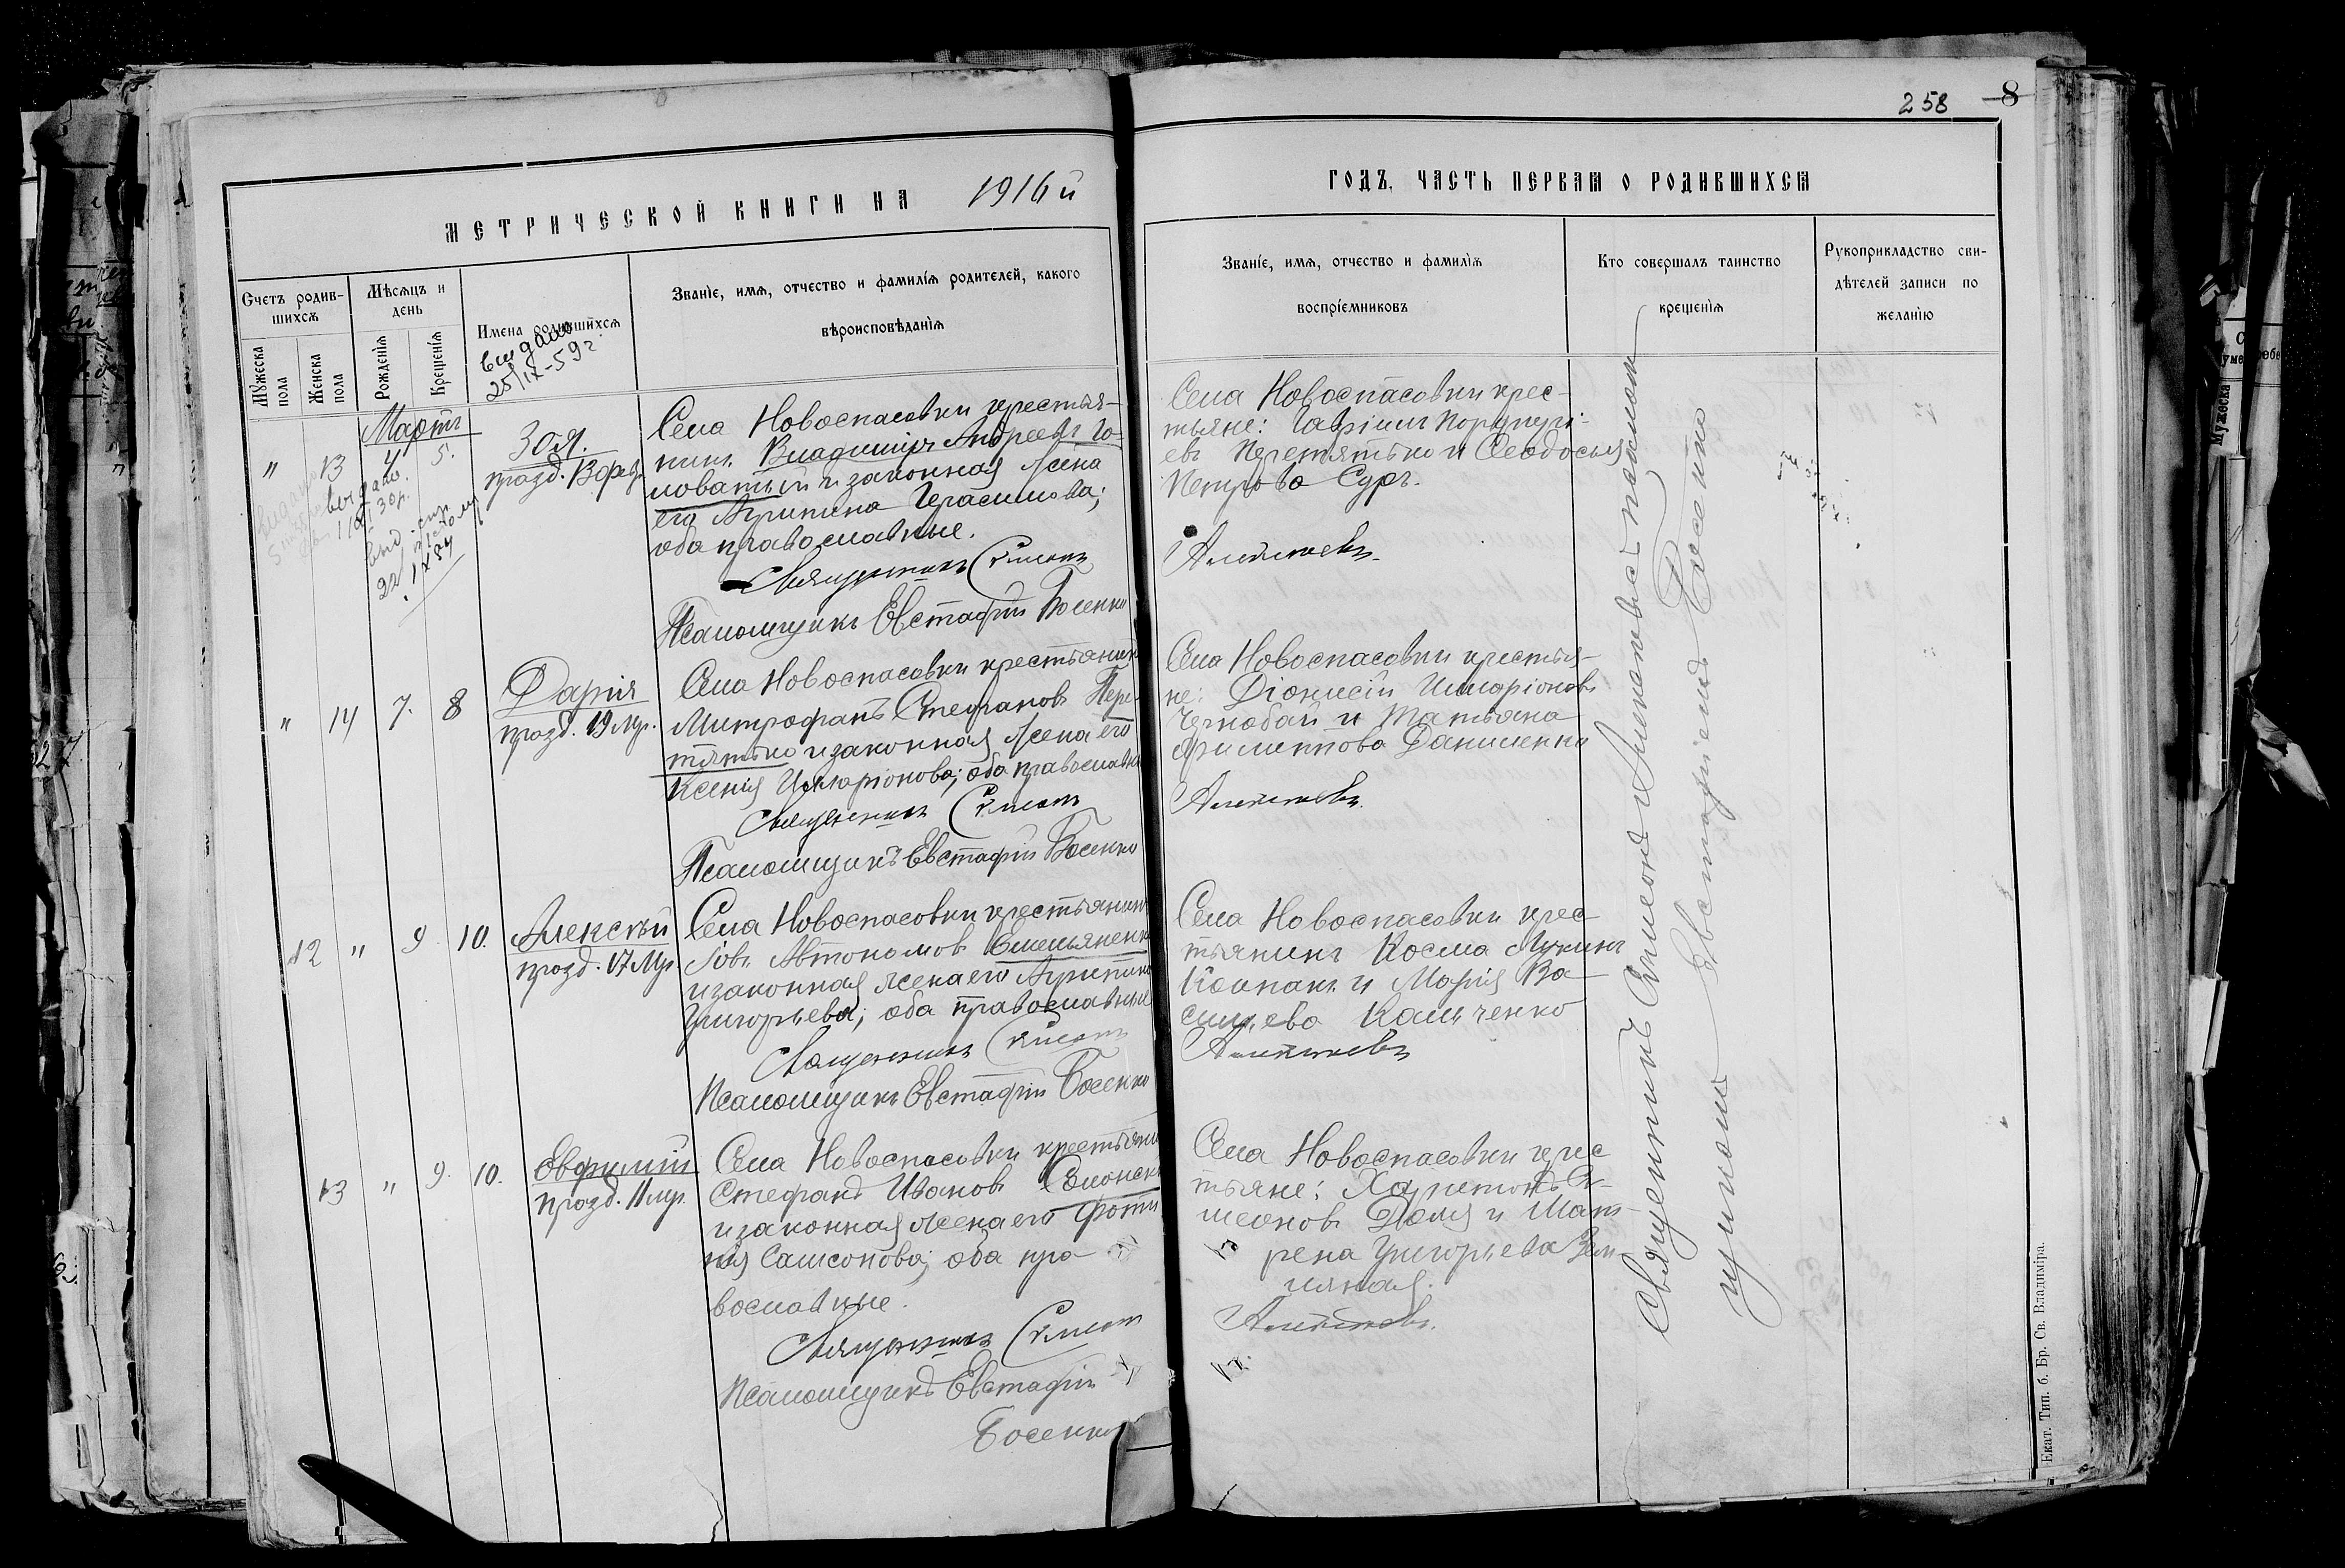 258 8
МЕТРИЧЕСКОЙ КНИГИ НА 1916й
ГОДЪ, ЧАСТЬ ПЕРВАЯ О РОДИВШИХСЯ
Счетъ родив-
шихся
Мужеска пола
Женска пола
Мѣсяцъ и
день
Рожденія
Крещенія
Имена родившихся
Званіе, имя, отчество и фамилія родителей, какого
вѣроисповѣданія
Званіе, имя, отчество и фамилія
воспріемниковъ
Кто совершалъ таинство
крещенія
Рукоприкладство сви-
дѣтелей записи по
желанію
выдано
25/IX-59г.
Мартъ
" 13 4. 5.
Зоя.
празд. 13 февр.
Села Новоспасовки крестья-
нинъ Владиміръ Андреевъ Го-
ловатый и законная жена
его Агрипина Герасимова;
оба православные.
Священникъ
Псаломщикъ Евстафій Босенко
Села Новоспасовки крес-
тьяне:
евъ Перетятько и Ѳеодосія
Петрова
" 14 7. 8
Дарія
празд. 19 Мр.
Села Новоспасовки крестьянинъ
Митрофанъ Стефановъ Пере-
тятько и законная жена его
Ксенія Илларіонова; оба православные
Священникъ
Псаломщикъ Евстафій Босенко
Села Новоспасовки крестья-
не: Діонисій Илларіоновъ
Чернобай и Татьяна
Филиппова Даниленко
12 " 9. 10.
Алексѣй
празд. 17 Мр.
Села Новоспасовки крестьянинъ
Іовъ Автономовъ Емельяненко
и законная жена его Агрипина
Григорьева; оба православные
Священникъ
Псаломщикъ Евстафій Босенко
Села Новоспасовки крес-
тьянинъ Косма Лукинъ
Колпакъ и Марія Ва-
сильева Кальченко
13 " 9. 10.
Евфимій
празд. 11 мр.
Села Новоспасовки крестьянинъ
Стефанъ Ивановъ
и законная жена его Фоти-
нія Самсонова; оба пра-
вославные.
Священникъ
Псаломщикъ Евстафій
Босенко
Села Новоспасовки крес
тьяне: Харитонъ Си-
меоновъ и Мат-
рена Григорьева
Священникъ Симеонъ съ псалом-
щикомъ Евстафіемъ Босенко
Екат. Тип. б. Бр. Св. Владиміра.